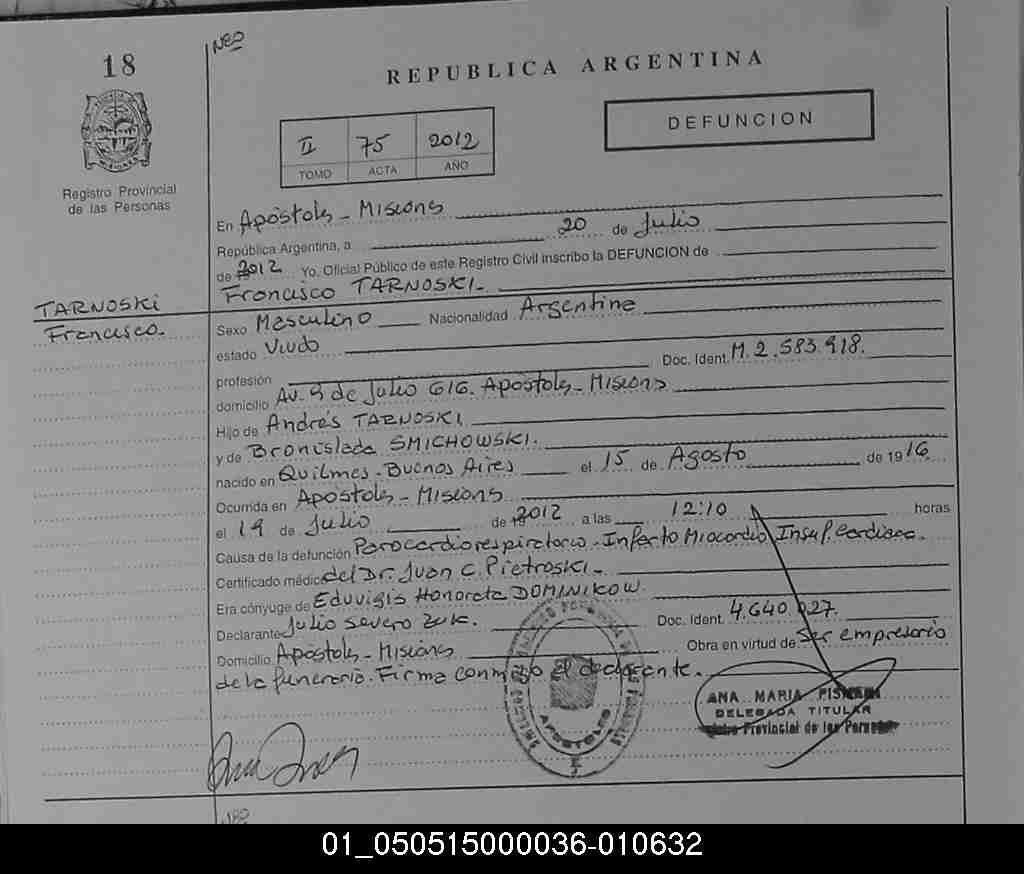 18
NEO
REPUBLICA ARGENTINA
II 75 2012
TOMO ACTA AÑO
DEFUNCION
Registro Provincial
de las Personas
En Apóstoles - Misiones
República Argentina, a 20 de Julio
de 2012 Yo, Oficial Público de este Registro Civil inscribo la DEFUNCION de
Francisco TARNOSKI.
TARNOSKI
Francisco.
Sexo Masculino Nacionalidad Argentina
estado Viudo
Doc. Ident. M. 2.583.918.
profesión
domicilio Av. 9 de Julio 616. Apóstoles - Misiones
Hijo de Andrés TARNOSKI,
y de Bronislada SMICHOWSKI.
nacido en Quilmes - Buenos Aires el 15 de Agosto de 1916.
Ocurrida en Apóstoles - Misiones
el 19 de Julio de 2012 a las 12:10 horas
Causa de la defunción Parocardiorespiratorio - Infarto Miocardio Insuf. Cardiaca.
Certificado médico del Dr. Juan C. Pietroski.
Era cónyuge de Eduvigis Honorata DOMINIKOW.
Declarante Julio Severo ZUK. Doc. Ident. 4.640.027.
Domicilio Apóstoles - Misiones Obra en virtud de Ser empresario
de la funeraria. Firma conmigo el declarante.
APOSTOLES
ANA MARIA
DELEGADA TITULAR
Provincial de las Personas
01_050515000036-010632